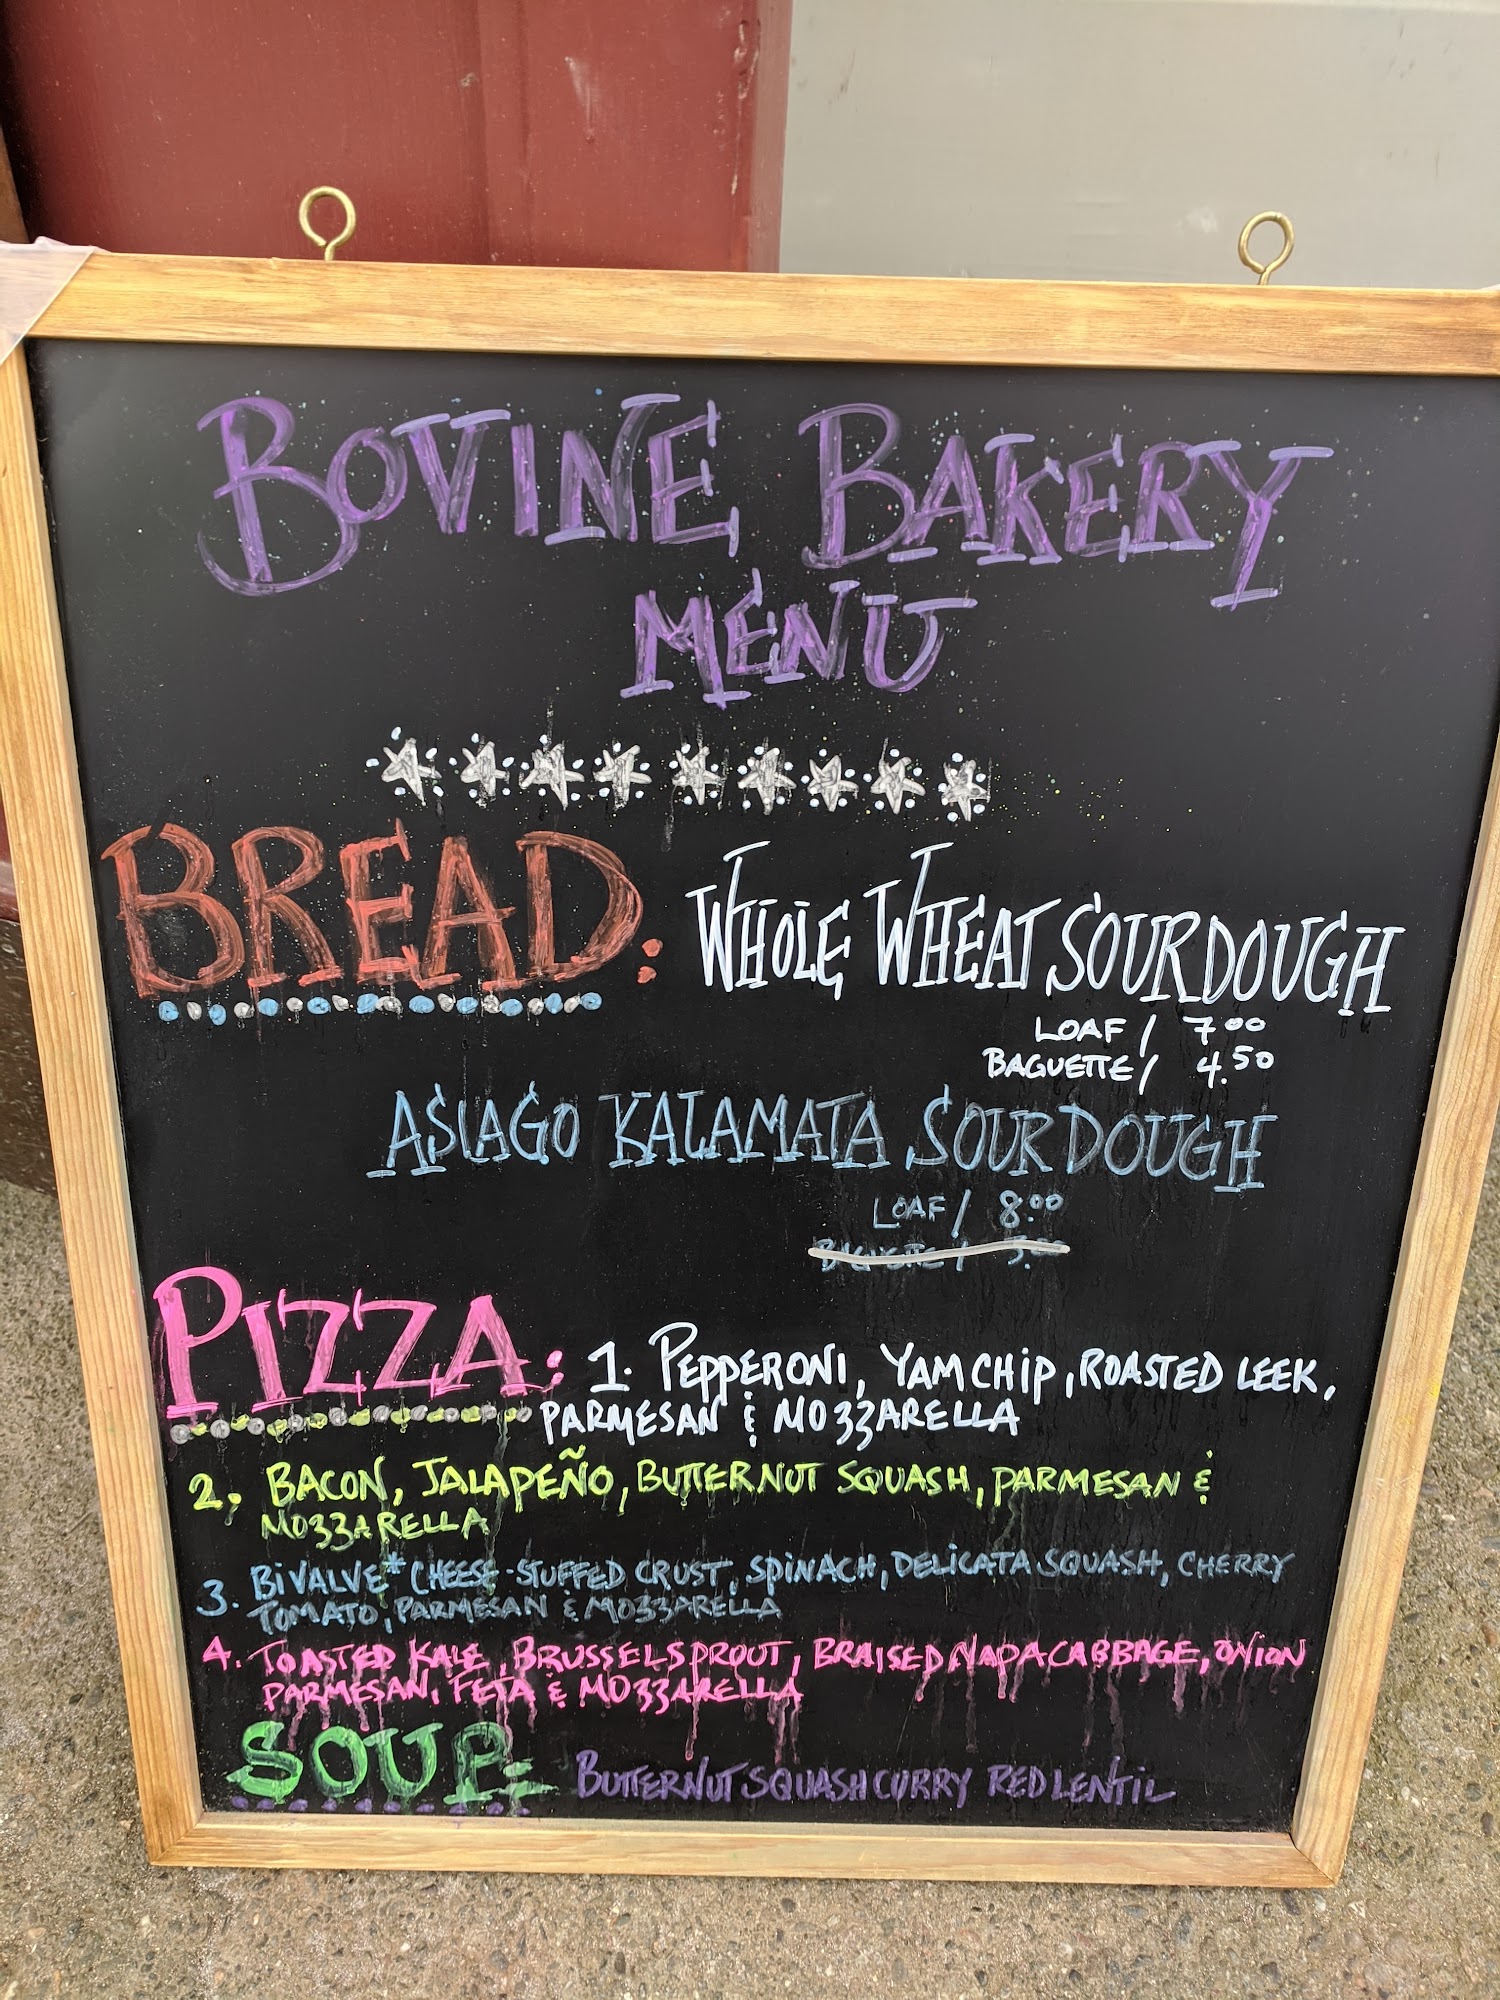 BOVINE BAKERY
MENU
BREAD: WHOLE WHEAT SOURDOUGH
LOAF / 7.00
BAGUETTE / 4.50
ASIAGO KALAMATA SOURDOUGH
LOAF / 8.00
BAGUETTE / 5.00
PIZZA: 1. PEPPERONI, YAM CHIP, ROASTED LEEK,
PARMESAN & MOZZARELLA
2. BACON, JALAPEÑO, BUTTERNUT SQUASH, PARMESAN &
MOZZARELLA
3. BIVALVE* CHEESE-STUFFED CRUST, SPINACH, DELICATA SQUASH, CHERRY
TOMATO, PARMESAN & MOZZARELLA
4. TOASTED KALE, BRUSSELSPROUT, BRAISED NAPA CABBAGE, ONION
PARMESAN, FETA & MOZZARELLA
SOUP: BUTTERNUT SQUASH CURRY RED LENTIL